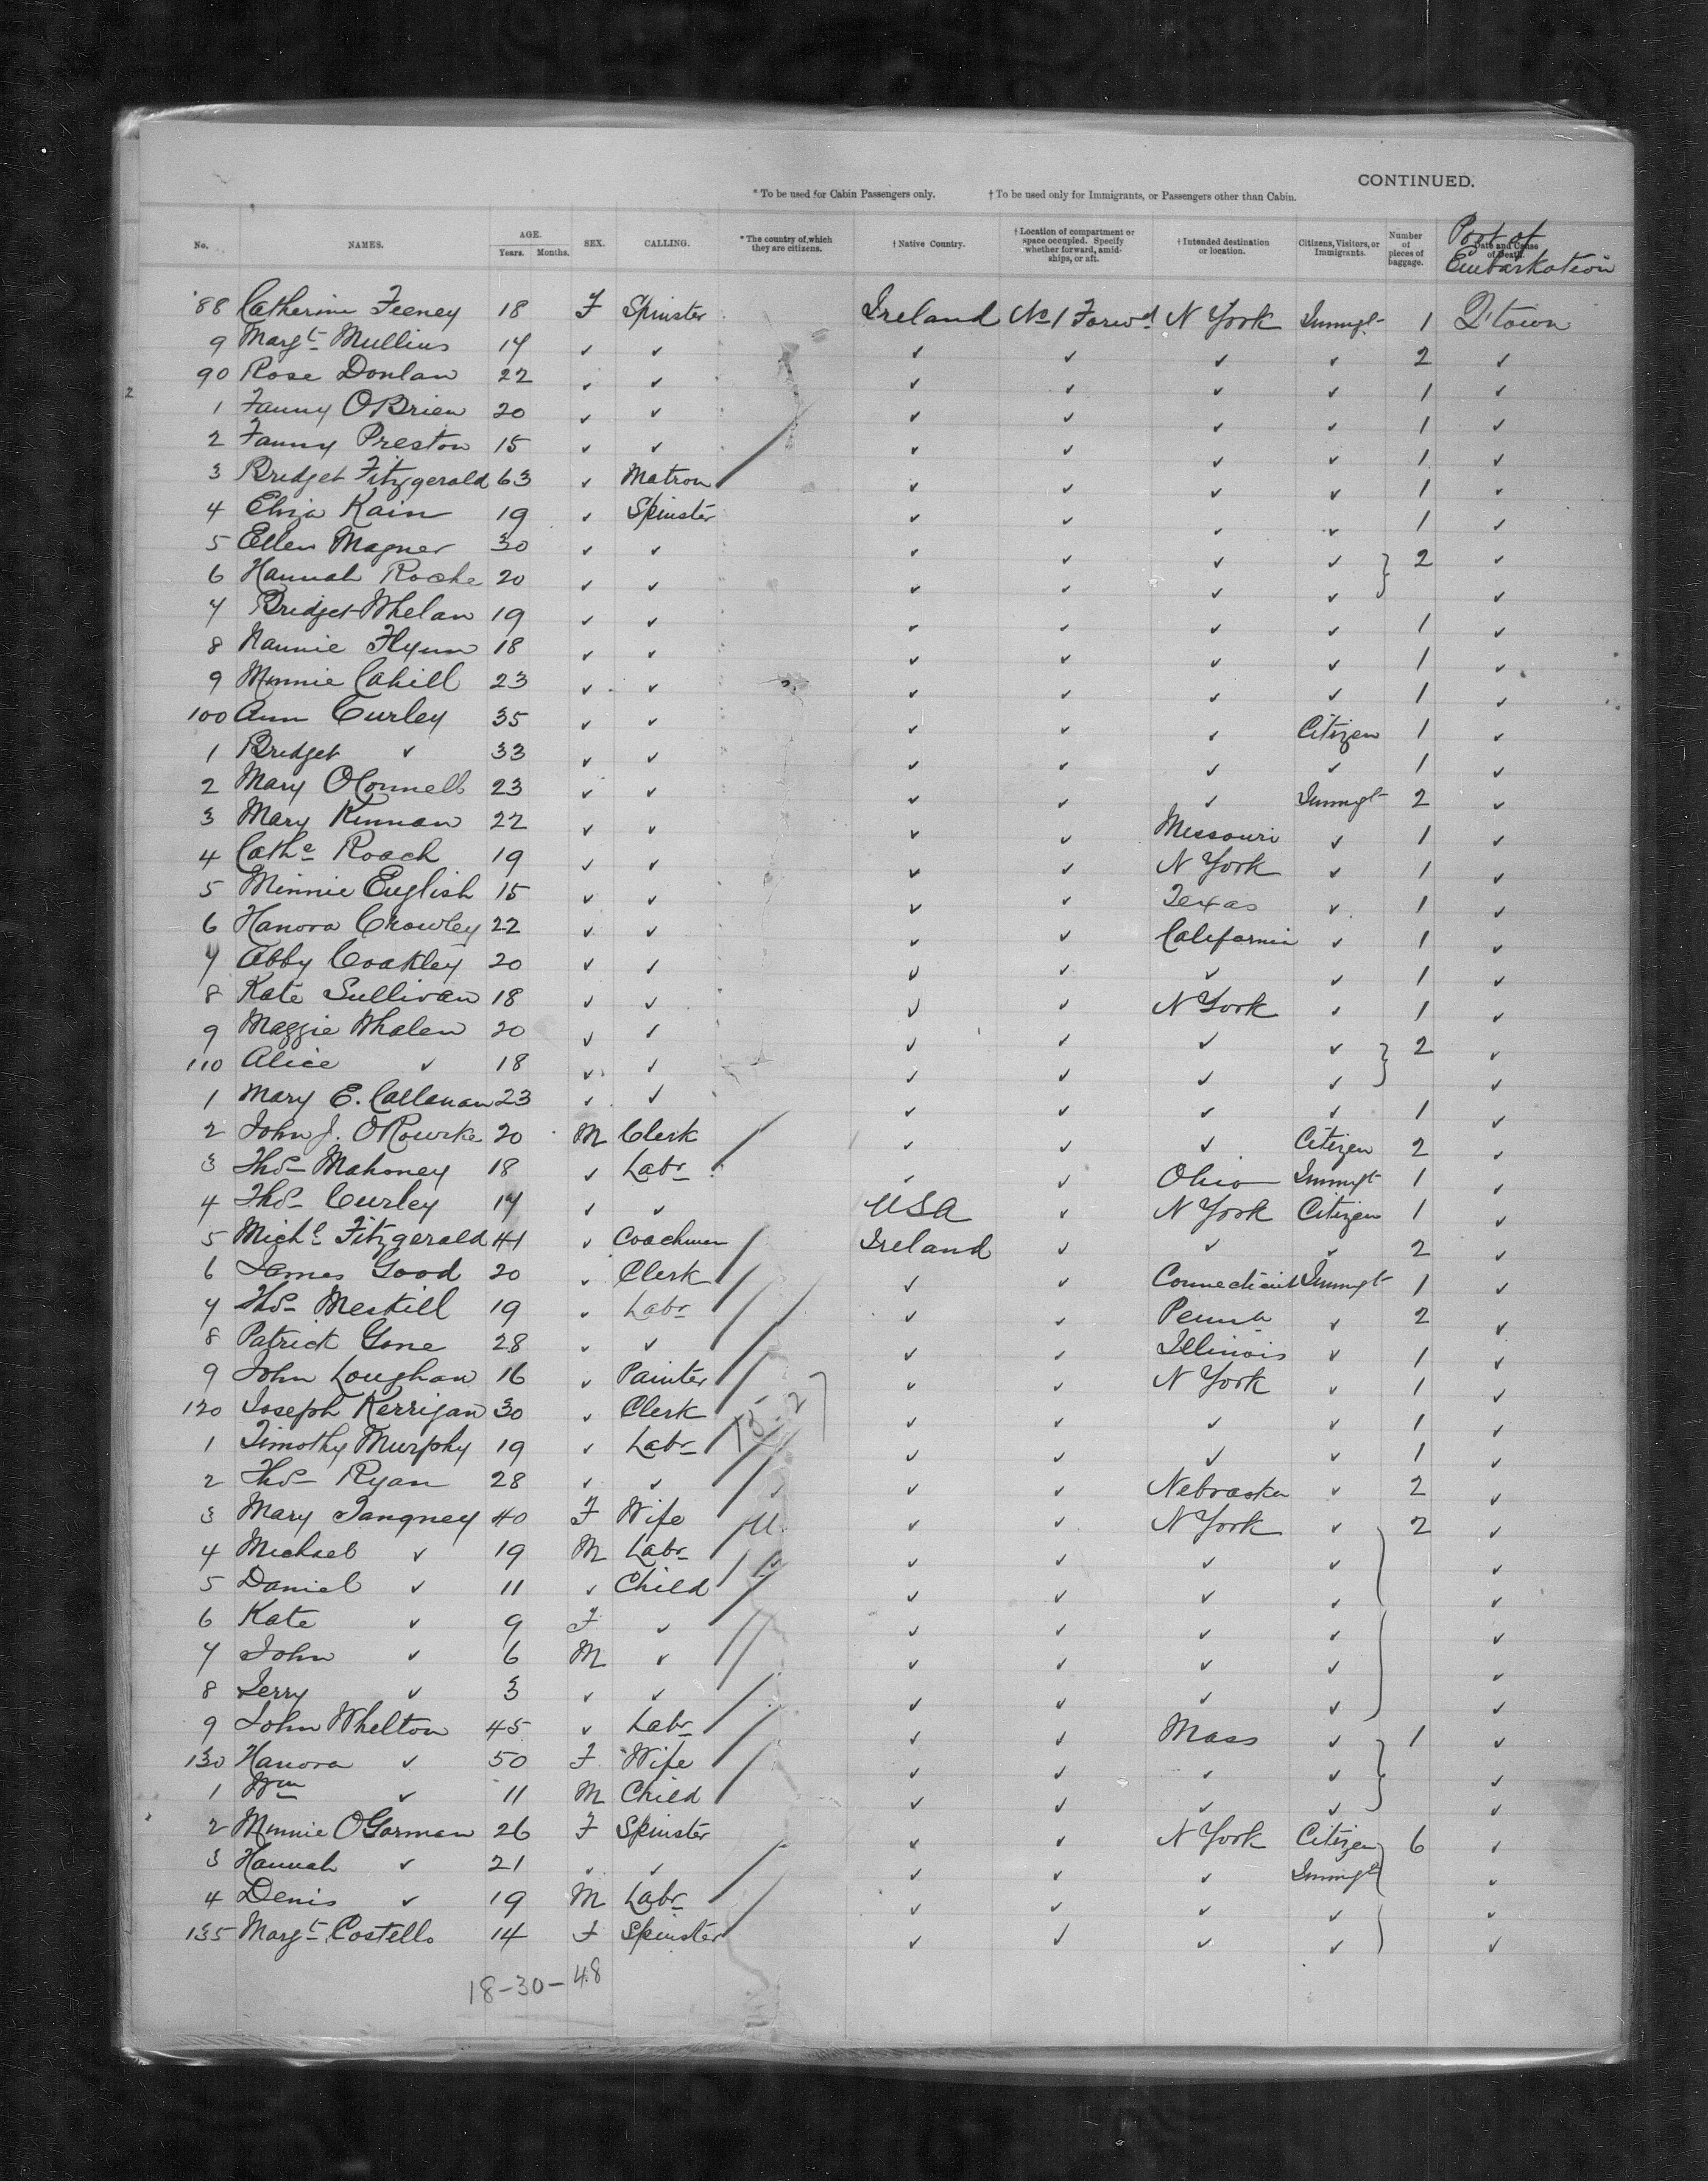 CONTINUED.
* To be used for Cabin Passengers only. † To be used only for Immigrants, or Passengers other than Cabin.
No. NAMES. AGE. Years. Months. SEX. CALLING. * The country of which they are citizens. † Native Country. † Location of compartment or space occupied. Specify whether forward, amidships, or aft. † Intended destination or location. Citizens, Visitors, or Immigrants. Number of pieces of baggage. Date and Cause of Death. Port of Embarkation
88 Catherine Feeney 18 F Spinster Ireland No 1 Forwd N York Immgt 1 Q'town
9 Margt Mullins 17 ✓ ✓ ✓ ✓ ✓ ✓ 2 ✓
90 Rose Donlan 22 ✓ ✓ ✓ ✓ ✓ ✓ 1 ✓
1 Fanny OBrien 20 ✓ ✓ ✓ ✓ ✓ ✓ 1 ✓
2 Fanny Preston 15 ✓ ✓ ✓ ✓ ✓ ✓ 1 ✓
3 Bridget Fitzgerald 63 ✓ Matron ✓ ✓ ✓ ✓ 1 ✓
4 Eliza Kain 19 ✓ Spinster ✓ ✓ ✓ ✓ 1 ✓
5 Ellen Magner 30 ✓ ✓ ✓ ✓ ✓ ✓ } 2 ✓
6 Hannah Roche 20 ✓ ✓ ✓ ✓ ✓ ✓ ✓
7 Bridget Whelan 19 ✓ ✓ ✓ ✓ ✓ ✓ 1 ✓
8 Nannie Flynn 18 ✓ ✓ ✓ ✓ ✓ ✓ 1 ✓
9 Minnie Cahill 23 ✓ ✓ ✓ ✓ ✓ ✓ 1 ✓
100 Ann Curley 35 ✓ ✓ ✓ ✓ ✓ Citizen 1 ✓
1 Bridget ✓ 33 ✓ ✓ ✓ ✓ ✓ ✓ 1 ✓
2 Mary OConnell 23 ✓ ✓ ✓ ✓ ✓ Immgt 2 ✓
3 Mary Kinnan 22 ✓ ✓ ✓ ✓ Messouri ✓ 1 ✓
4 Cathe Roach 19 ✓ ✓ ✓ ✓ N York ✓ 1 ✓
5 Minnie English 15 ✓ ✓ ✓ ✓ Texas ✓ 1 ✓
6 Hanora Crowley 22 ✓ ✓ ✓ ✓ California ✓ 1 ✓
7 Abby Coakley 20 ✓ ✓ ✓ ✓ ✓ ✓ 1 ✓
8 Kate Sullivan 18 ✓ ✓ ✓ ✓ N York ✓ 1 ✓
9 Maggie Whalen 20 ✓ ✓ ✓ ✓ ✓ ✓ } 2 ✓
110 Alice ✓ 18 ✓ ✓ ✓ ✓ ✓ ✓ ✓
1 Mary E. Callanan 23 ✓ ✓ ✓ ✓ ✓ ✓ 1 ✓
2 John J. ORourke 20 M Clerk ✓ ✓ ✓ Citizen 2 ✓
3 Thos Mahoney 18 ✓ Labr ✓ ✓ Ohio Immgt 1 ✓
4 Thos Curley 17 ✓ ✓ USA ✓ N York Citizen 1 ✓
5 Michl Fitzgerald 41 ✓ Coachman Ireland ✓ ✓ ✓ 2 ✓
6 James Good 20 ✓ Clerk ✓ ✓ Connecticut Immgt 1 ✓
7 Thos Meskill 19 ✓ Labr ✓ ✓ Penna ✓ 2 ✓
8 Patrick 28 ✓ ✓ ✓ ✓ Illinois ✓ 1 ✓
9 John Loughan 16 ✓ Painter ✓ ✓ N York ✓ 1 ✓
120 Joseph Kerrigan 30 ✓ Clerk ✓ ✓ ✓ ✓ 1 ✓
1 Timothy Murphy 19 ✓ Labr ✓ ✓ ✓ ✓ 1 ✓
2 Thos Ryan 28 ✓ ✓ ✓ ✓ Nebraska ✓ 2 ✓
3 Mary Tangney 40 F Wife ✓ ✓ N York ✓ 2 ✓
4 Michael ✓ 19 M Labr ✓ ✓ ✓ ✓ ✓
5 Daniel ✓ 11 ✓ Child ✓ ✓ ✓ ✓ ✓
6 Kate ✓ 9 F ✓ ✓ ✓ ✓ ✓ ✓
7 John ✓ 6 M ✓ ✓ ✓ ✓ ✓ ✓
8 Jerry ✓ 3 ✓ ✓ ✓ ✓ ✓ ✓ ✓
9 John Whelton 45 ✓ Labr ✓ ✓ Mass ✓ } 1 ✓
130 Hanora ✓ 50 F Wife ✓ ✓ ✓ ✓ ✓
1 Wm ✓ 11 M Child ✓ ✓ ✓ ✓ ✓
2 Minnie OGorman 26 F Spinster ✓ ✓ N York Citizen 6 ✓
3 Hannah ✓ 21 ✓ ✓ ✓ ✓ ✓ Immgt ✓
4 Denis ✓ 19 M Labr ✓ ✓ ✓ ✓ ✓
135 Margt Costello 14 F Spinster ✓ ✓ ✓ ✓ ✓
18-30-48